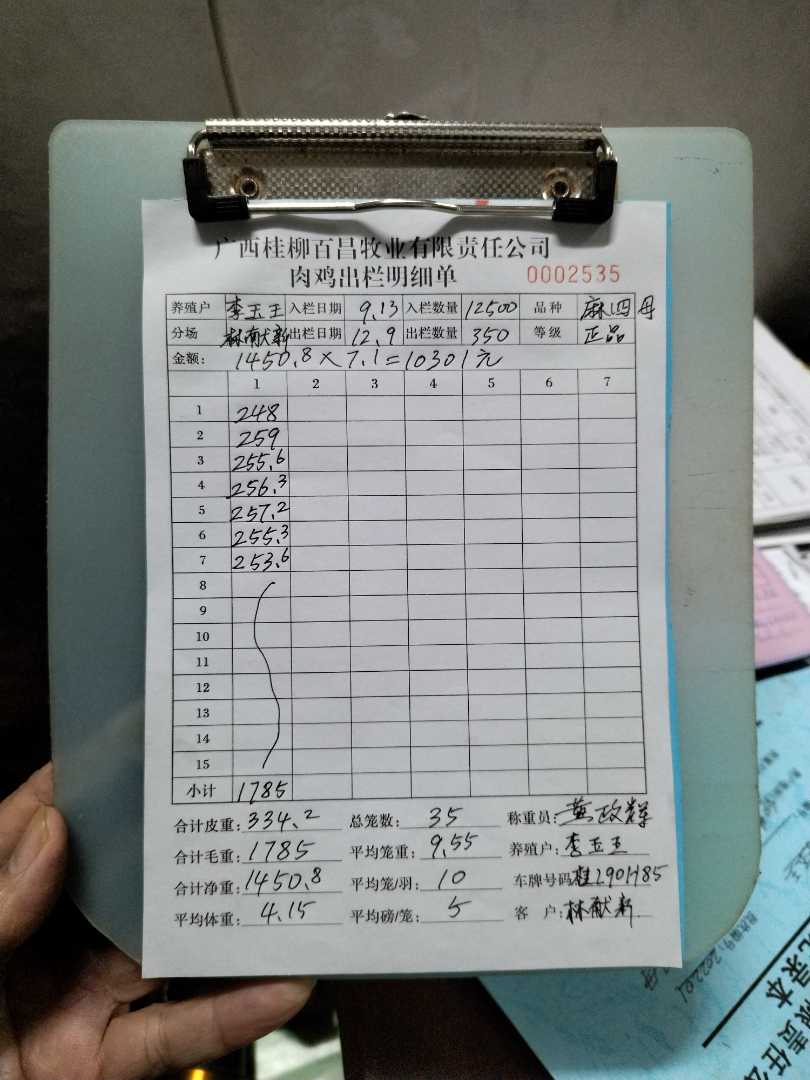 广西桂柳百昌牧业有限责任公司
肉鸡出栏明细单 0002535
养殖户 李玉王 入栏日期 9.13 入栏数量 12500 品种 麻四母
分场 林献新 出栏日期 12.9 出栏数量 350 等级 正品
金额: 1450.8×7.1=10301元
1 2 3 4 5 6 7
1 248
2 259
3 255.6
4 256.3
5 257.2
6 255.3
7 253.6
8
9
10
11
12
13
14
15
小计 1785
合计皮重: 334.2 总笼数: 35 称重员: 黄政辉
合计毛重: 1785 平均笼重: 9.55 养殖户: 李玉王
合计净重: 1450.8 平均笼/羽: 10 车牌号码:
平均体重: 4.15 平均磅/笼: 5 客 户: 林献新